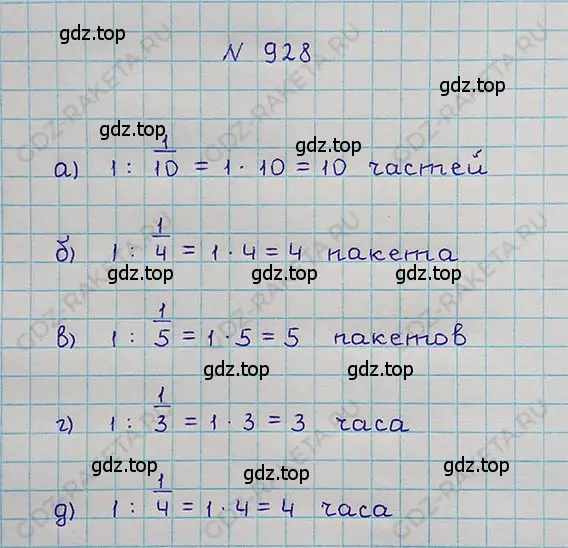 gdz.top
N 928
gdz.top
gdz.top
а) 1 : 1/10 = 1 · 10 = 10 частей
gdz.top
б) 1 : 1/4 = 1 · 4 = 4 пакета
gdz.top gdz.top
в) 1 : 1/5 = 1 · 5 = 5 пакетов
gdz.top gdz.top
г) 1 : 1/3 = 1 · 3 = 3 часа
gdz.top gdz.top
д) 1 : 1/4 = 1 · 4 = 4 часа
gdz.top gdz.top
GDZ-RAKETA.RU
GDZ-RAKETA.RU
GDZ-RAKETA.RU
GDZ-RAKETA.RU
GDZ-RAKETA.RU
GDZ-RAKETA.RU